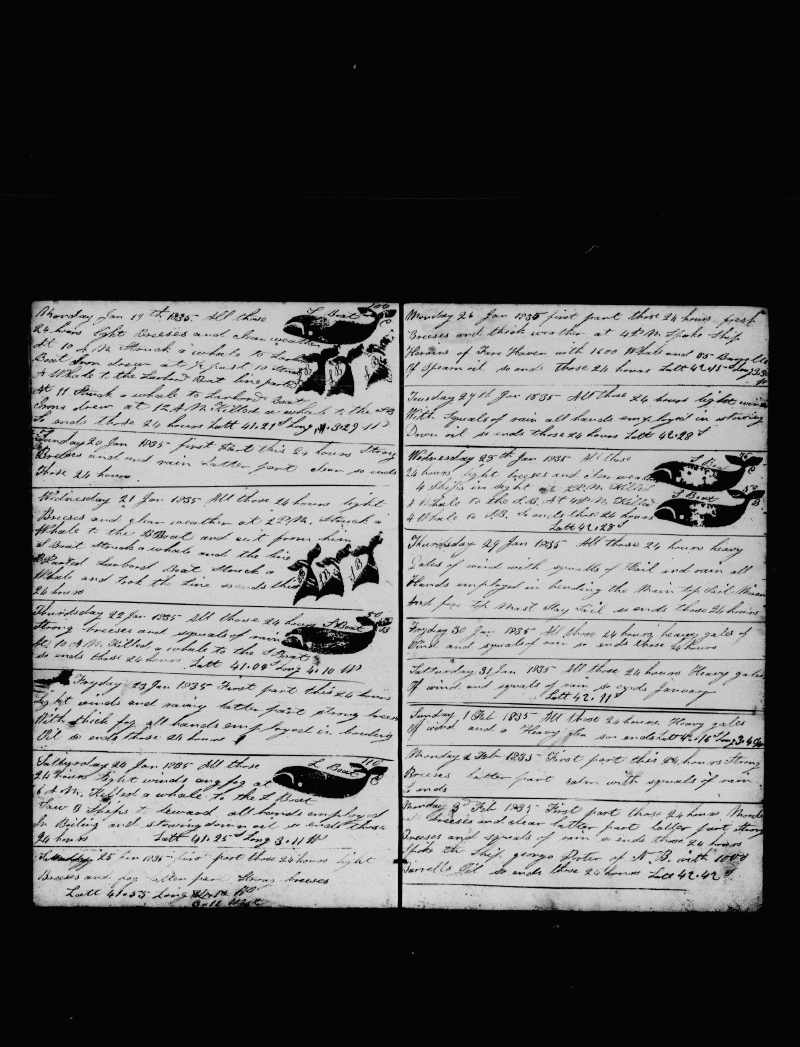 Monday Jan 19th 1835 All those
24 hours light Breeses and clear weather
At 10 A M Struck a whale to
Boat Iron drew at 1/2 past 10 Struck
A Whale to the Larbord Boat line parted
At 11 Struck a whale to Larbord Boat
Irons drew at 12 A M Killed a whale to the SB
So ends those 24 hours Latt 41.21 S Long 3.29 W
S Boat
100
20 Jan 1835 first Part this 24 hours Strong
Breeses and rain Latter part clear so ends
those 24 hours
Wednesday 21 Jan 1835 All those 24 hours light
Breeses and clear weather at 2 P.M. Struck a
Whale to the Boat and cut from him
Boat Struck a whale and the line
Larbord Boat Struck a
Whale and took the Line so ends this
24 hours
Thursday 22 Jan 1835 All those 24 hours
Strong breeses and squals of rain
At 10 A M Killed a whale to the S Boat
so ends those 24 hours Latt 41.08 S Long 4.10 W
S Boat
50
Fryday 23 Jan 1835 First part this 24 hours
Light winds and rainy latter part strong breeses
With thick fog all hands employed in bowling
Oil so ends those 24 hours
Satturday 24 Jan 1835 All those
24 hours light winds and fog at
6 A M. Killed a whale to the L Boat
Saw 8 Ships to Leward all hands employed
In Boiling and stowing down oil so ends those
24 hours Latt 41.25 S Long 3.11 W
L Boat
110
25 Jan 1835 first part those 24 hours light
Breeses and fog latter part Strong breeses
Latt 41.53 Long
Monday 26 Jan 1835 first part those 24 hours fresh
Breeses and thick weather at 4 P.M. Spoke Ship
of Fare Haven with 1600 Whale and 85 Barrylls
Of Spearm oil so ends those 24 hours Latt 42.45 S Long
Tuesday 27th Jan 1835 All those 24 hours light winds
With Squals of rain all hands employed in stowing
Down oil so ends those 24 hours Latt 42.28 S
Wednesday 28th Jan 1835 All those
24 hours light breeses and clear weather
4 Ships in sight at 2 P.M. Killed
A Whale to the L.B. At 4 P.M. Killed
A Whale to S.B. So ends those 24 hours
Latt 42.28 S
S Boat
50
Thursday 29 Jan 1835 All those 24 hours heavy
Gales of wind with squals of hail and rain all
Hands employed in bending the Main top Sail Mizen
and for top Mast Stay Sail so ends those 24 hours
Fryday 30 Jan 1835 All those 24 hours heavy gales of
Wind and squals of rain so ends those 24 hours
Satturday 31 Jan 1835 All those 24 hours Heavy gales
Of wind and squals of rain so ends January
Latt 42.11 S
Sunday 1 Feb 1835 All those 24 hours Heavy gales
Of wind and a Heavy Sea so ends Latt 42.16 S Long 3.4
Monday 2 Feb 1835 First part this 24 hours Strong
Breeses latter part calm with squals of rain
So ends
3d Feb 1835 First part those 24 hours
Breeses and clear latter part latter part strong
Breeses and squals of rain so ends those 24 hours
Spoke the Ship george Porter of N.B. with 1000
Barrells Oil so ends those 24 hours Latt 42.42 S